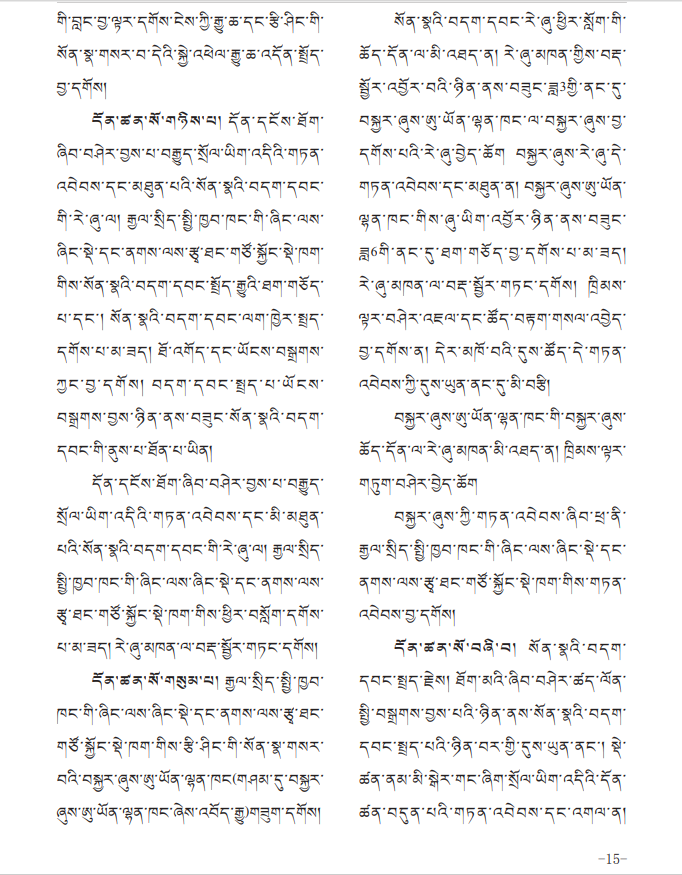 གི་བླང་བྱ་ལྟར་དགོས་ངེས་ཀྱི་རྒྱུ་ཆ་དང་རྩི་ཤིང་གི་
སོན་སྣ་གསར་བ་དེའི་སྐྱེ་འཕེལ་རྒྱུ་ཆ་འདོན་སྤྲོད་
བྱ་དགོས།
དོན་ཚན་སོ་གཉིས་པ། དོན་དངོས་ཐོག་
ཞིབ་བཤེར་བྱས་པ་བརྒྱུད་སྲོལ་ཡིག་འདིའི་གཏན་
འབེབས་དང་མཐུན་པའི་སོན་སྣའི་བདག་དབང་
གི་རེ་ཞུ་ལ། རྒྱལ་སྲིད་སྤྱི་ཁྱབ་ཁང་གི་ཞིང་ལས་
ཞིང་སྡེ་དང་ནགས་ལས་རྩྭ་ཐང་གཙོ་སྐྱོང་སྡེ་ཁག་
གིས་སོན་སྣའི་བདག་དབང་སྤྲོད་རྒྱུའི་ཐག་གཅོད་
པ་དང་། སོན་སྣའི་བདག་དབང་ལག་ཁྱེར་སྤྲད་
དགོས་པ་མ་ཟད། ཐོ་འགོད་དང་ཡོངས་བསྒྲགས་
ཀྱང་བྱ་དགོས། བདག་དབང་སྤྲད་པ་ཡོངས་
བསྒྲགས་བྱས་ཉིན་ནས་བཟུང་སོན་སྣའི་བདག་
དབང་གི་ནུས་པ་ཐོན་པ་ཡིན།
དོན་དངོས་ཐོག་ཞིབ་བཤེར་བྱས་པ་བརྒྱུད་
སྲོལ་ཡིག་འདིའི་གཏན་འབེབས་དང་མི་མཐུན་
པའི་སོན་སྣའི་བདག་དབང་གི་རེ་ཞུ་ལ། རྒྱལ་སྲིད་
སྤྱི་ཁྱབ་ཁང་གི་ཞིང་ལས་ཞིང་སྡེ་དང་ནགས་ལས་
རྩྭ་ཐང་གཙོ་སྐྱོང་སྡེ་ཁག་གིས་ཕྱིར་བསློག་དགོས་
པ་མ་ཟད། རེ་ཞུ་མཁན་ལ་བརྡ་སྦྱོར་གཏང་དགོས།
དོན་ཚན་སོ་གསུམ་པ། རྒྱལ་སྲིད་སྤྱི་ཁྱབ་
ཁང་གི་ཞིང་ལས་ཞིང་སྡེ་དང་ནགས་ལས་རྩྭ་ཐང་
གཙོ་སྐྱོང་སྡེ་ཁག་གིས་རྩི་ཤིང་གི་སོན་སྣ་གསར་
བའི་བསྐྱར་ཞུས་ཨུ་ཡོན་ལྷན་ཁང(གཤམ་དུ་བསྐྱར་
ཞུས་ཨུ་ཡོན་ལྷན་ཁང་ཞེས་འབོད་རྒྱུ)གཟུག་དགོས།
སོན་སྣའི་བདག་དབང་རེ་ཞུ་ཕྱིར་སློག་གི་
ཚོད་དོན་ལ་མི་འཐད་ན། རེ་ཞུ་མཁན་གྱིས་བརྡ་
སྦྱོར་འབྱོར་བའི་ཉིན་ནས་བཟུང་ཟླ3གྱི་ནང་དུ་
བསྐྱར་ཞུས་ཨུ་ཡོན་ལྷན་ཁང་ལ་བསྐྱར་ཞུས་བྱ་
དགོས་པའི་རེ་ཞུ་བྱེད་ཆོག བསྐྱར་ཞུས་རེ་ཞུ་དེ་
གཏན་འབེབས་དང་མཐུན་ན། བསྐྱར་ཞུས་ཨུ་ཡོན་
ལྷན་ཁང་གིས་ཞུ་ཡིག་འབྱོར་ཉིན་ནས་བཟུང་
ཟླ6གི་ནང་དུ་ཐག་གཅོད་བྱ་དགོས་པ་མ་ཟད།
རེ་ཞུ་མཁན་ལ་བརྡ་སྦྱོར་གཏང་དགོས། ཁྲིམས་
ལྟར་བཤེར་འཇལ་དང་ཚོད་བརྟག་གསལ་འབྱེད་
བྱ་དགོས་ན། དེར་མཁོ་བའི་དུས་ཚོད་དེ་གཏན་
འབེབས་ཀྱི་དུས་ཡུན་ནང་དུ་མི་བརྩི།
བསྐྱར་ཞུས་ཨུ་ཡོན་ལྷན་ཁང་གི་བསྐྱར་ཞུས་
ཚོད་དོན་ལ་རེ་ཞུ་མཁན་མི་འཐད་ན། ཁྲིམས་ལྟར་
གཏུག་བཤེར་བྱེད་ཆོག
བསྐྱར་ཞུས་ཀྱི་གཏན་འབེབས་ཞིབ་ཕྲ་ནི་
རྒྱལ་སྲིད་སྤྱི་ཁྱབ་ཁང་གི་ཞིང་ལས་ཞིང་སྡེ་དང་
ནགས་ལས་རྩྭ་ཐང་གཙོ་སྐྱོང་སྡེ་ཁག་གིས་གཏན་
འབེབས་བྱ་དགོས།
དོན་ཚན་སོ་བཞི་བ། སོན་སྣའི་བདག་
དབང་སྤྲད་རྗེས། ཐོག་མའི་ཞིབ་བཤེར་ཚད་ལོན་
སྤྱི་བསྒྲགས་བྱས་པའི་ཉིན་ནས་སོན་སྣའི་བདག་
དབང་སྤྲད་པའི་ཉིན་བར་གྱི་དུས་ཡུན་ནང་། སྡེ་
ཚན་ནམ་མི་སྒེར་གང་ཞིག་སྲོལ་ཡིག་འདིའི་དོན་
ཚན་བདུན་པའི་གཏན་འབེབས་དང་འགལ་ན།
-15-